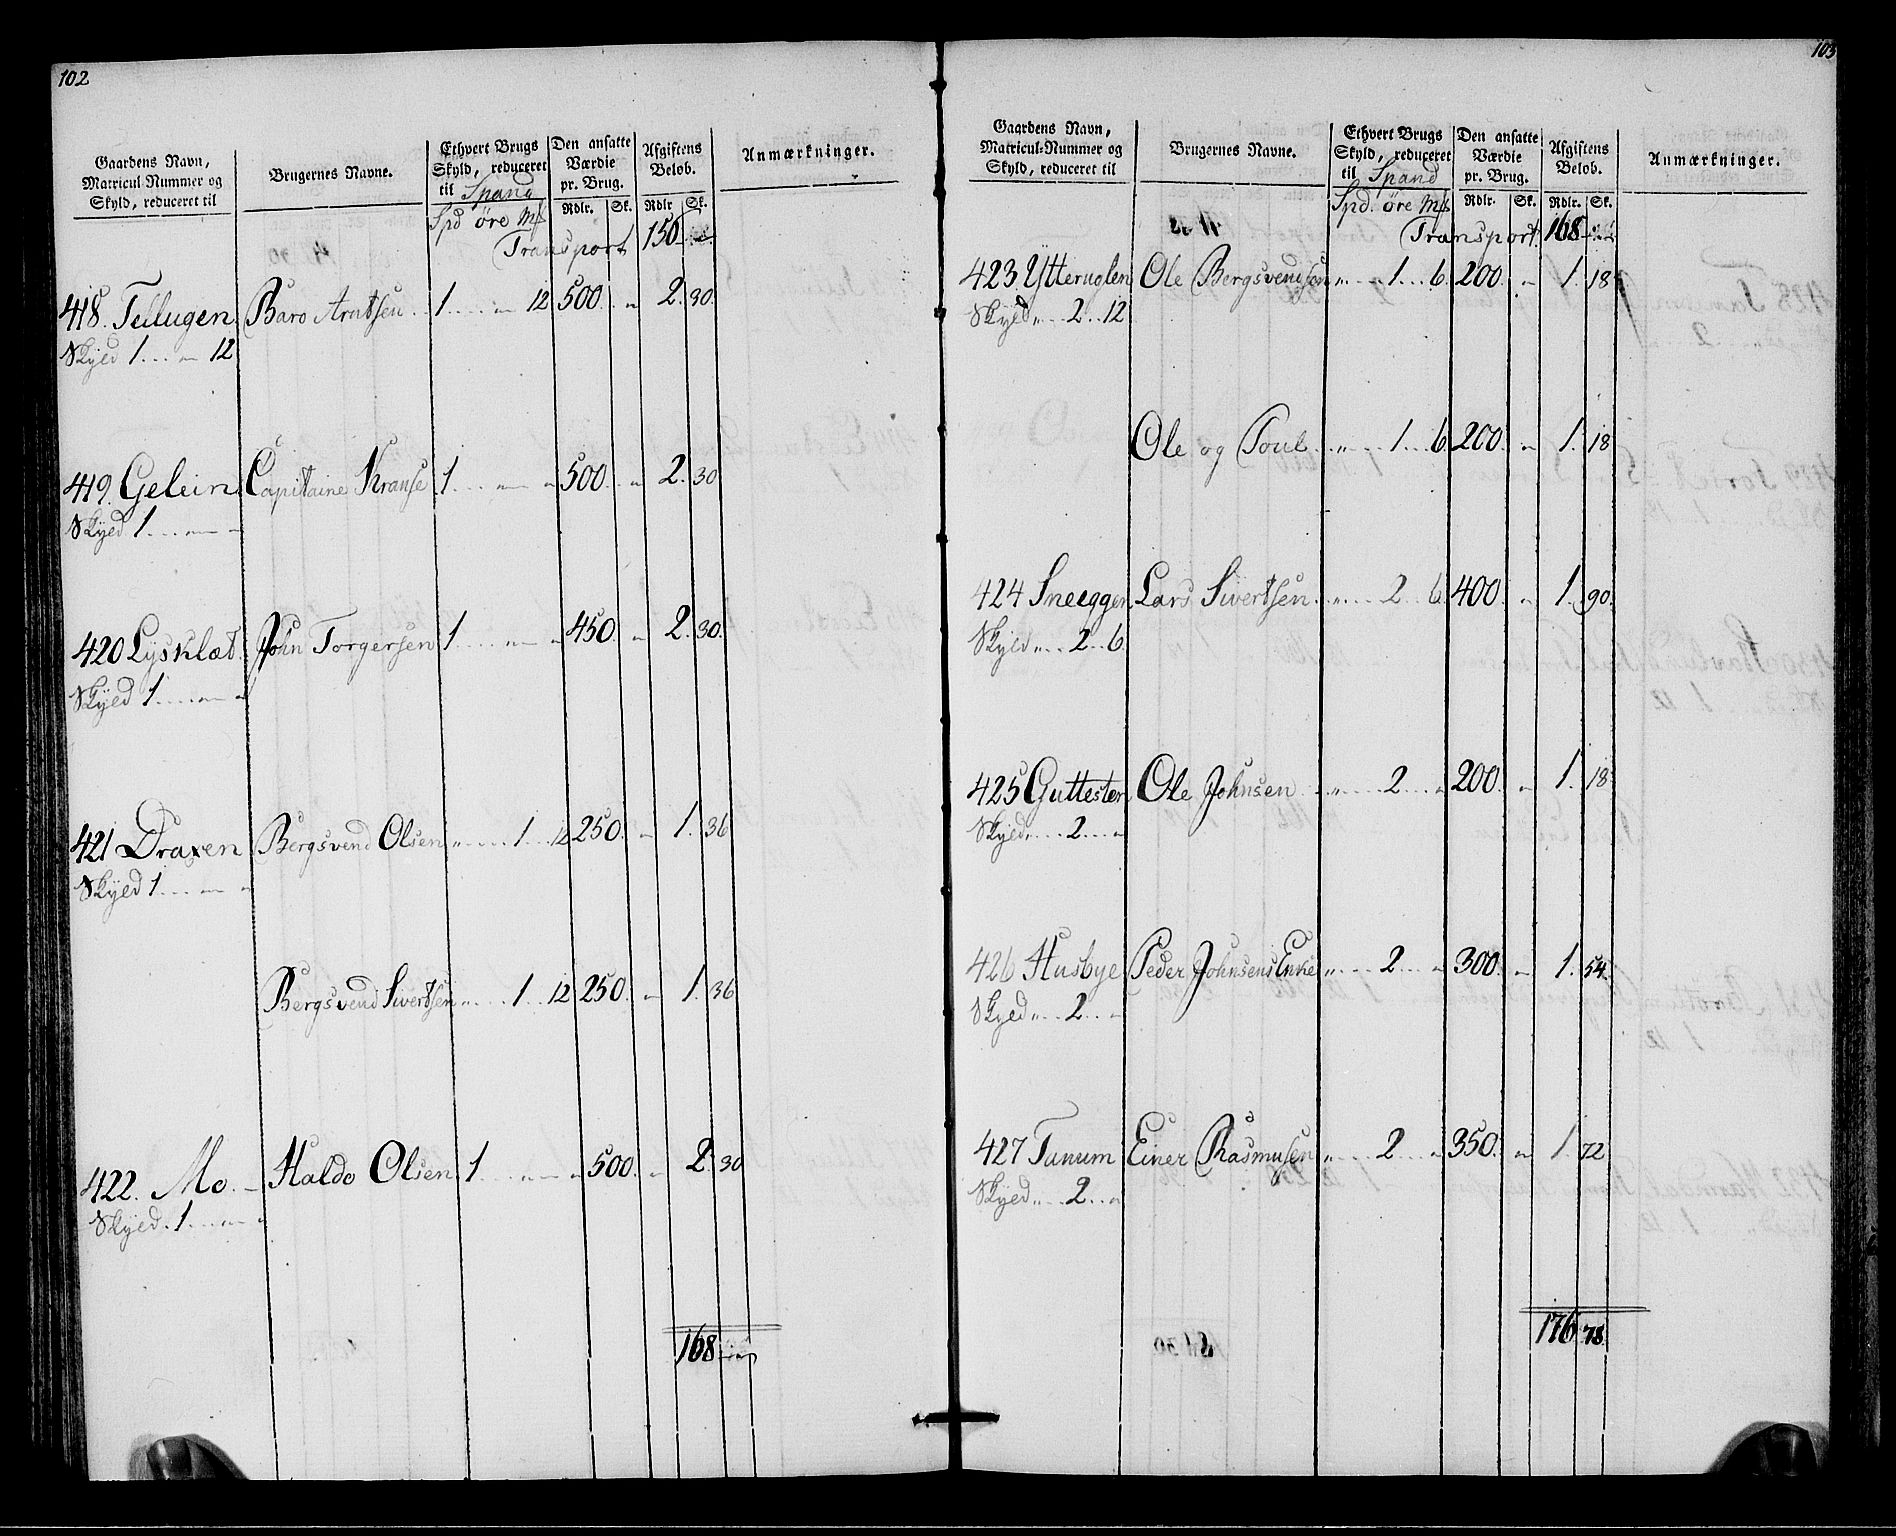 102
Gaardens Navn, Matricul-Nummer og Skyld, reduceret til | Brugernes Navne. | Ethvert Brugs Skyld, reduceret til Spand | Den ansatte Værdie pr. Brug. | Afgiftens Beløb. | Anmærkninger.
Spd øre Mk | Rdlr. Sk. | Rdlr Sk.
Transport 156
418. Tellugen Baro Arntsen 1 .... " 12 500. " 2. 30.
Skyld 1 ... " 12
419. Gelein Capitaine Kranse 1 ... " " 500. " 2. 30
Skyld 1 ... " "
420 Lysklæt John Torgersen 1 ... " " 450. " 2. 30.
Skyld 1 .... " "
421 Draxen Bergsvend Olsen " .... 1 .. 12 250. " 1. 36
Skyld 1 ... " "
Bergsvend Sivertsen " .... 1 .. 12 250. " 1. 36
422. Mo. Haldo Olsen 1 ... " " 500. " 2. 30
Skyld. 1 .... " "
168
103
Gaardens Navn, Matricul-Nummer og Skyld, reduceret til | Brugernes Navne. | Ethvert Brugs Skyld, reduceret til Spand | Den ansatte Værdie pr. Brug. | Afgiftens Beløb. | Anmærkninger.
Spd. øre Mk | Rdlr. Sk. | Rdlr. Sk.
Transport. 168
423 Ytteruglen Ole Bergsvendsen " .. 1 ... 6. 200. " 1. 18
Skyld " ... 2 .. 12
Ole og Poul " ... 1 ... 6. 200. " 1. 18
424 Sneeggen Lars Sivertsen " ... 2 .. 6. 400. " 1. 90.
Skyld " ... 2 .. 6.
425 Guttesten Ole Johnsen " ... 2 ... " 200. " 1. 18
Skyld " ... 2 ... "
426 Husbye Peder Johnsens Enke " ... 2 ... " 300. " 1. 54.
Skyld " ... 2 ... "
427 Tanum Einer Rasmusen " .... 2 .. " 350. " 1. 72
Skyld " ... 2 ... "
176. 78.